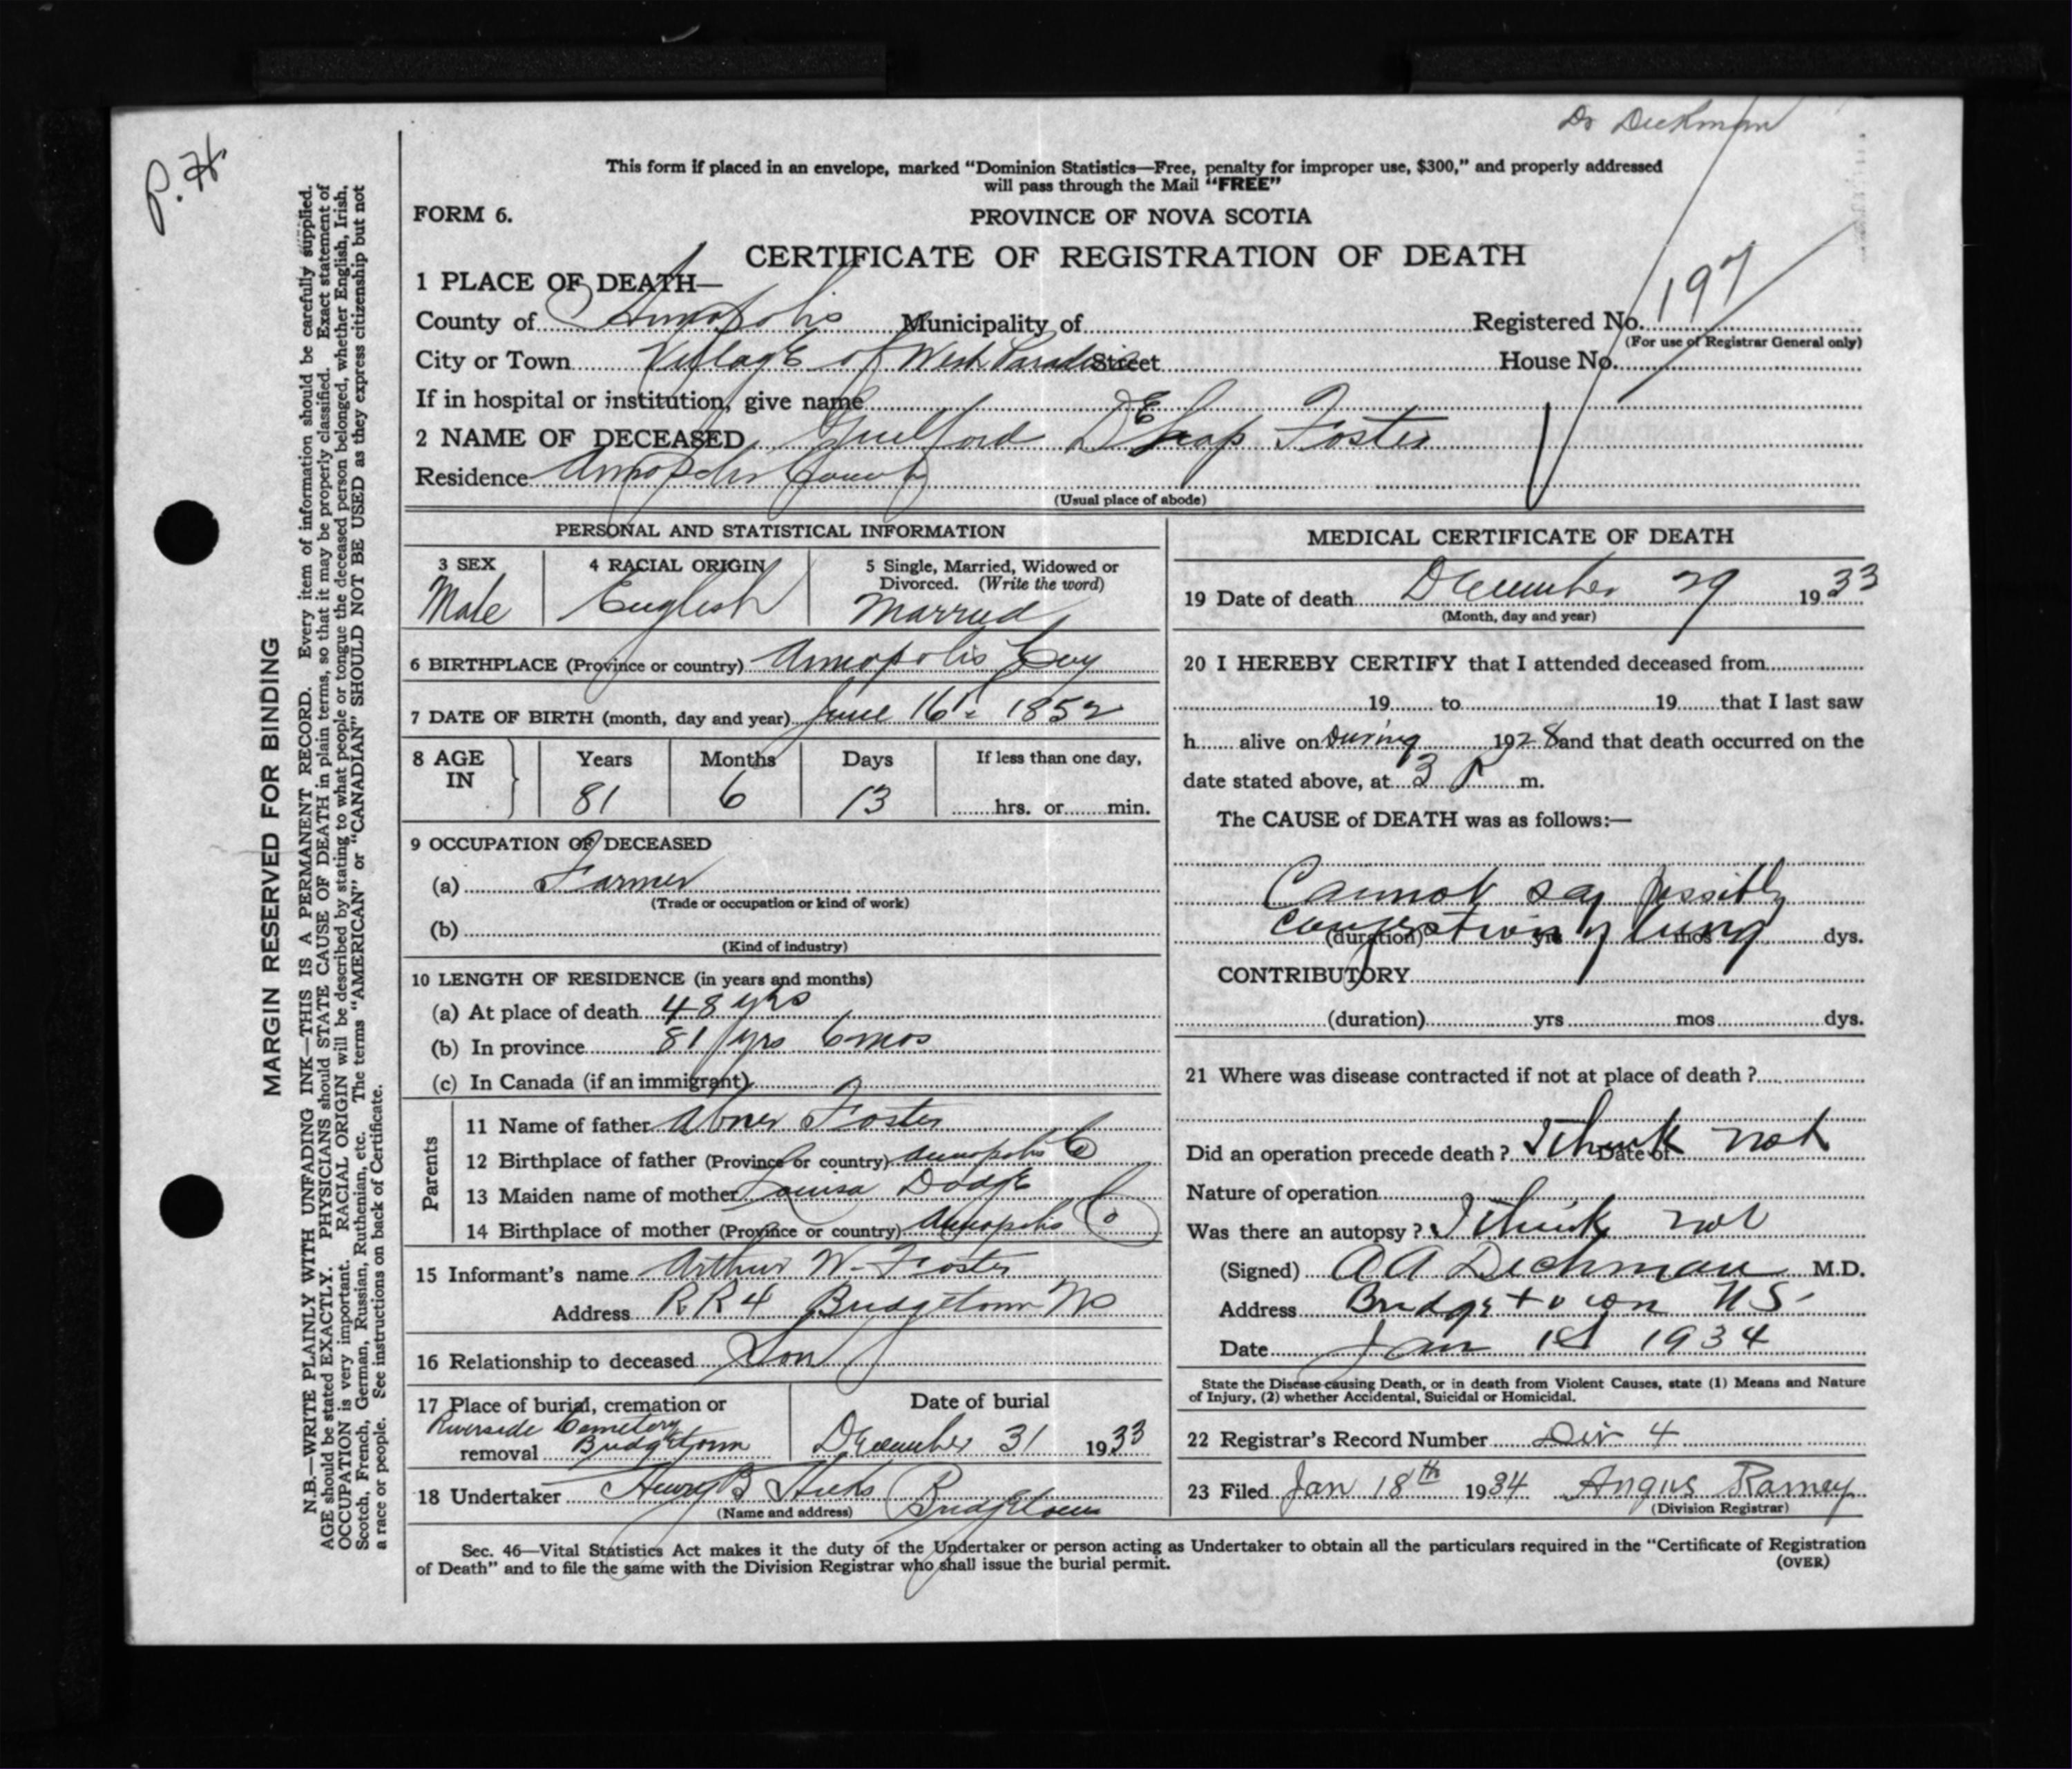 Dr Deckman
P. H.
This form if placed in an envelope, marked "Dominion Statistics—Free, penalty for improper use, $300," and properly addressed
will pass through the Mail "FREE"
FORM 6.
PROVINCE OF NOVA SCOTIA
CERTIFICATE OF REGISTRATION OF DEATH
1 PLACE OF DEATH—
County of Annapolis Municipality of Registered No. 197
(For use of Registrar General only)
City or Town Village of West Paradise Street House No.
If in hospital or institution, give name
2 NAME OF DECEASED Guilford DELap Foster
Residence Annapolis County
(Usual place of abode)
PERSONAL AND STATISTICAL INFORMATION
3 SEX 4 RACIAL ORIGIN 5 Single, Married, Widowed or
Divorced. (Write the word)
Male English Married
6 BIRTHPLACE (Province or country) Annapolis
7 DATE OF BIRTH (month, day and year) June 16th 1852
8 AGE IN Years Months Days If less than one day,
81 6 13 hrs. or min.
9 OCCUPATION OF DECEASED
(a) Farmer
(Trade or occupation or kind of work)
(b)
(Kind of industry)
10 LENGTH OF RESIDENCE (in years and months)
(a) At place of death 48 yrs
(b) In province 81 yrs 6 mos
(c) In Canada (if an immigrant)
Parents
11 Name of father Abner Foster
12 Birthplace of father (Province or country) Annapolis Co
13 Maiden name of mother Louisa Dodge
14 Birthplace of mother (Province or country) Annapolis Co
15 Informant's name Arthur W. Foster
Address RR4 Bridgetown NS
16 Relationship to deceased Son
17 Place of burial, cremation or Date of burial
Riverside Cemetery
removal Bridgetown December 31 1933
18 Undertaker Henry B Hicks Bridgetown
(Name and address)
MEDICAL CERTIFICATE OF DEATH
19 Date of death December 29 1933
(Month, day and year)
20 I HEREBY CERTIFY that I attended deceased from
19 to 19 that I last saw
h alive on During 1928 and that death occurred on the
date stated above, at 3 P m.
The CAUSE of DEATH was as follows:—
Cannot say possibly
congestion of lung
(duration) yrs mos dys.
CONTRIBUTORY
(duration) yrs mos dys.
21 Where was disease contracted if not at place of death?
Did an operation precede death? I think not Date of
Nature of operation
Was there an autopsy? I think not
(Signed) A A Dechman M.D.
Address Bridgetown NS
Date Jan 1st 1934
State the Disease causing Death, or in death from Violent Causes, state (1) Means and Nature
of Injury, (2) whether Accidental, Suicidal or Homicidal.
22 Registrar's Record Number Div 4
23 Filed Jan 18th 1934 Angus Ramey
(Division Registrar)
Sec. 46—Vital Statistics Act makes it the duty of the Undertaker or person acting as Undertaker to obtain all the particulars required in the "Certificate of Registration
of Death" and to file the same with the Division Registrar who shall issue the burial permit.
(OVER)
MARGIN RESERVED FOR BINDING
N.B.—WRITE PLAINLY WITH UNFADING INK—THIS IS A PERMANENT RECORD. Every item of information should be carefully supplied.
AGE should be stated EXACTLY. PHYSICIANS should STATE CAUSE OF DEATH in plain terms, so that it may be properly classified. Exact statement of
OCCUPATION is very important. RACIAL ORIGIN will be described by stating to what people or tongue the deceased person belonged, whether English, Irish,
Scotch, French, German, Russian, Ruthenian, etc. The terms "AMERICAN" or "CANADIAN" SHOULD NOT BE USED as they express citizenship but not
a race or people. See instructions on back of Certificate.